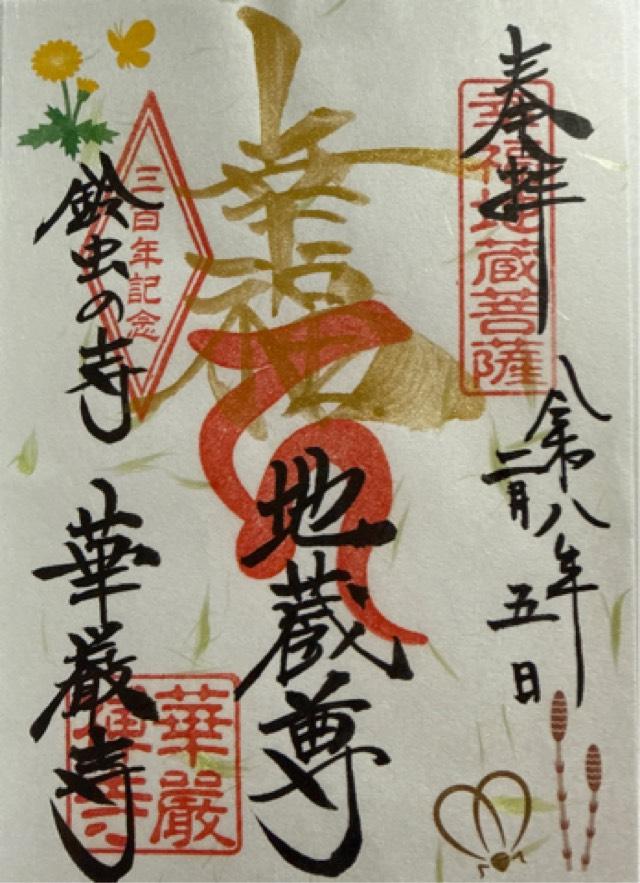 奉拝
幸福地蔵菩薩
令和八年
二月五日
幸福
地蔵尊
三百年記念
鈴虫の寺
華厳寺
華嚴
禅寺